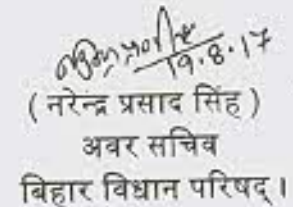 19.8.17
( नरेन्द्र प्रसाद सिंह )
अवर सचिव
बिहार विधान परिषद् ।